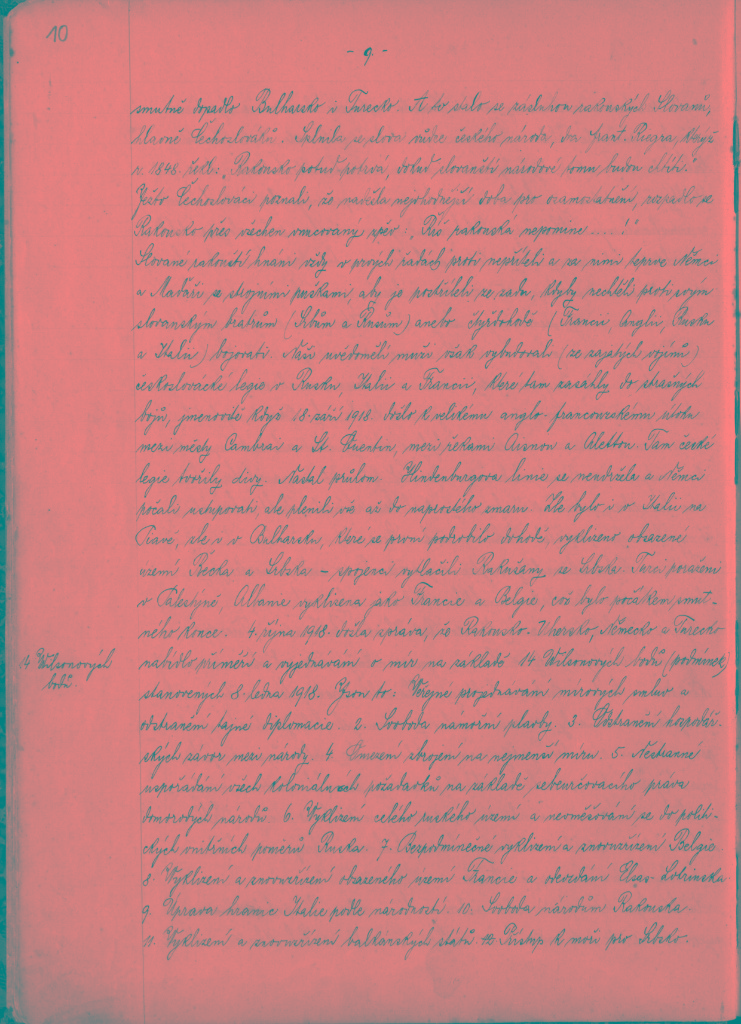 10
- 9. -
smutně dopadlo Bulharsko i Turecko. A to stalo se zásluhou rakouských Slovanů,
hlavně Čechoslováků. Splnila se slova vůdce českého národa, dra Frant. Riegra, který
v r. 1848 řekl: "Rakousko potud potrvá, dokud slovanští národové tomu budou chtíti."
Ježto Čechoslováci poznali, že nadešla nejvhodnější doba pro osamostatnění, rozpadlo se
Rakousko přes všechen vnucovaný zpěv: "Říš rakouská nepomine .....!"
Slované rakouští hnáni vždy v prvých řadách proti nepříteli a za nimi teprve Němci
a Maďaři se strojními puškami, aby je postříleli ze zadu, kdyby nechtěli proti svým
slovanským bratrům (Srbům a Rusům) anebo čtyřdohodě (Francii, Anglii, Rusku
a Italii) bojovati. Naši uvědomělí muži však vybudovali (ze zajatých vojínů)
československé legie v Rusku, Italii a Francii, které tam zasáhly do strašných
bojů, jmenovitě když 18. září 1918 došlo k velikému anglo-francouzskému útoku
mezi městy Cambrai a St. Quentin, mezi řekami Aisnou a Alettou. Tam české
legie tvořily divy. Nastal průlom. Hindenburgova linie se neudržela a Němci
počali ustupovati, ale plenili vše až do naprostého zmaru. Zle bylo i v Italii na
Piavě, ale i v Bulharsku, které se první podrobilo dohodě, vyklizeno obsazené
území Řecka a Srbska - spojenci vytlačili Rakušany ze Srbska. Turci poraženi
v Palestýně, Albanie vyklizena jako Francie a Belgie, což bylo počátkem smut-
ného konce. 4. října 1918 došla zpráva, že Rakousko-Uhersko, Německo a Turecko
nabídlo příměří a vyjednávání o mír na základě 14 Wilsonových bodů (podmínek)
14 Wilsonových
bodů.
stanovených 8. ledna 1918. Jsou to: Veřejné projednávání mírových smluv a
odstranění tajné diplomacie. 2. Svoboda námořní plavby. 3. Odstranění hospodář-
ských závor mezi národy. 4. Omezení zbrojení na nejmenší míru. 5. Nestranné
uspořádání všech koloniálních požadavků na základě sebeurčovacího práva
domorodých národů. 6. Vyklizení celého ruského území a nevměšování se do politi-
ckých vnitřních poměrů Ruska. 7. Bezpodmínečné vyklizení a znovuzřízení Belgie.
8. Vyklizení a znovuzřízení obsazeného území Francie a odevzdání Elsas-Lotrinska.
9. Úprava hranic Italie podle národností. 10. Svoboda národům Rakouska.
11. Vyklizení a znovuzřízení balkánských států. Přístup k moři pro Srbsko.